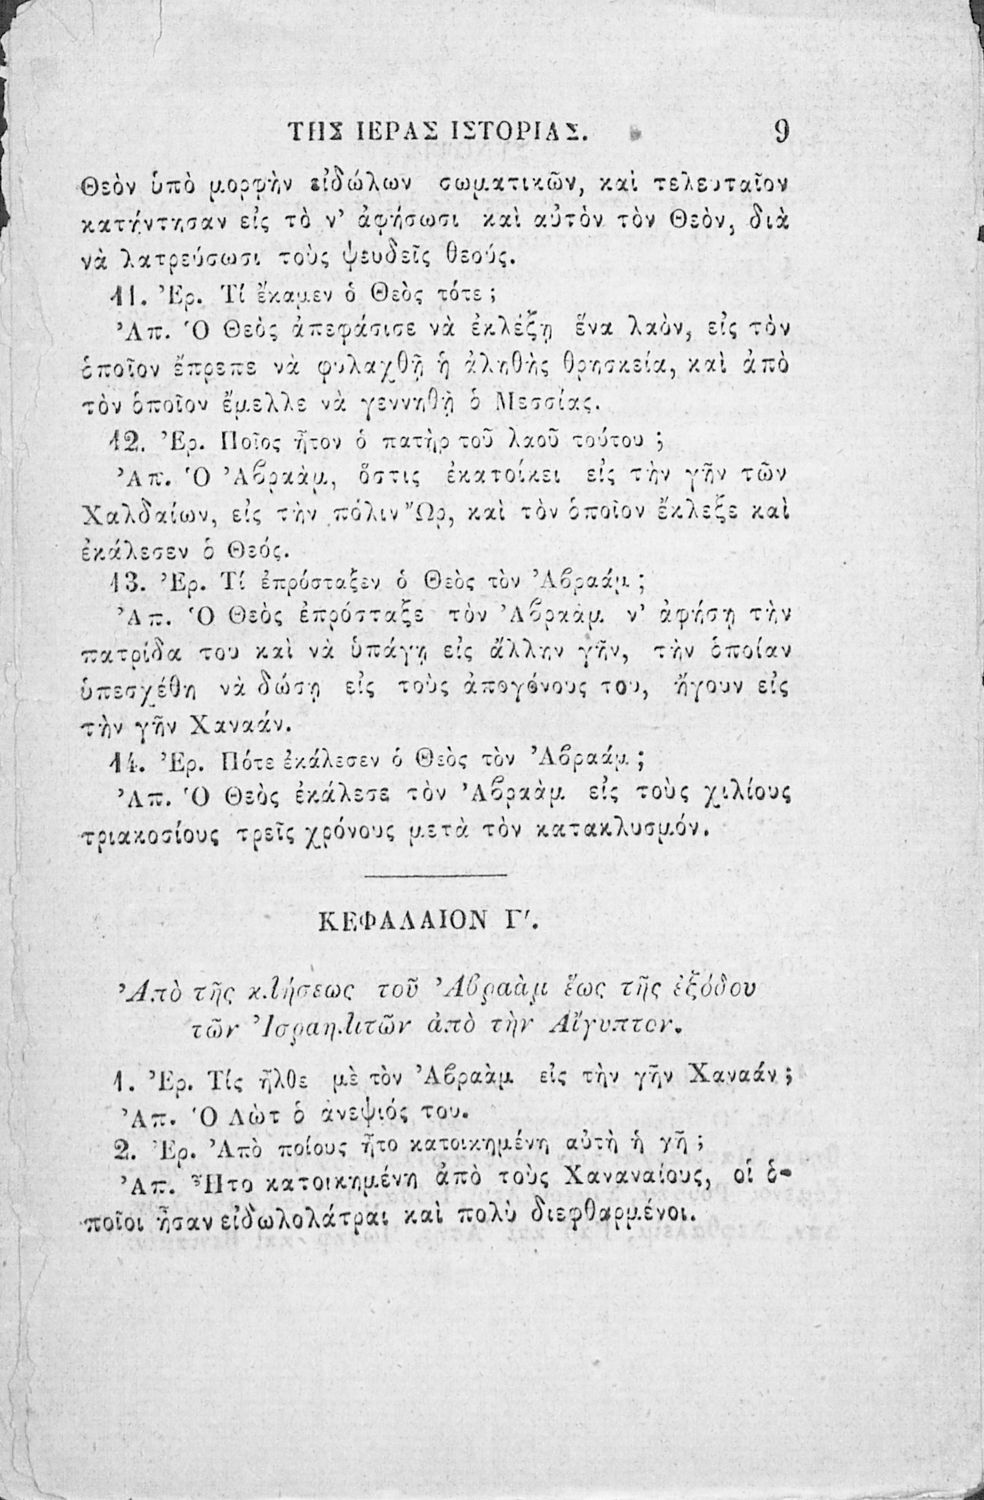 ΤΗΣ ΙΕΡΑΣ ΙΣΤΟΡΙΑΣ. 9
Θεὸν ὑπὸ μορφὴν εἰδώλων σωματικῶν, καὶ τελευταῖον
κατήντησαν εἰς τὸ ν' ἀφήσωσι καὶ αὐτὸν τὸν Θεὸν, διὰ
νὰ λατρεύσωσι τοὺς ψευδεῖς θεούς.
11. Ἐρ. Τί ἔκαμεν ὁ Θεὸς τότε ;
Ἀπ. Ὁ Θεὸς ἀπεφάσισε νὰ ἐκλέξῃ ἕνα λαὸν, εἰς τὸν
ὁποῖον ἔπρεπε νὰ φυλαχθῇ ἡ ἀληθὴς θρησκεία, καὶ ἀπὸ
τὸν ὁποῖον ἔμελλε νὰ γεννηθῇ ὁ Μεσσίας.
12. Ἐρ. Ποῖος ἦτον ὁ πατὴρ τοῦ λαοῦ τούτου ;
Ἀπ. Ὁ Ἀβραὰμ, ὅστις ἐκατοίκει εἰς τὴν γῆν τῶν
Χαλδαίων, εἰς τὴν πόλιν Ὢρ, καὶ τὸν ὁποῖον ἔκλεξε καὶ
ἐκάλεσεν ὁ Θεός.
13. Ἐρ. Τί ἐπρόσταξεν ὁ Θεὸς τὸν Ἀβραάμ ;
Ἀπ. Ὁ Θεὸς ἐπρόσταξε τὸν Ἀβραὰμ ν' ἀφήσῃ τὴν
πατρίδα του καὶ νὰ ὑπάγῃ εἰς ἄλλην γῆν, τὴν ὁποίαν
ὑπεσχέθη νὰ δώσῃ εἰς τοὺς ἀπογόνους του, ἤγουν εἰς
τὴν γῆν Χαναάν.
14. Ἐρ. Πότε ἐκάλεσεν ὁ Θεὸς τὸν Ἀβραάμ ;
Ἀπ. Ὁ Θεὸς ἐκάλεσε τὸν Ἀβραὰμ εἰς τοὺς χιλίους
τριακοσίους τρεῖς χρόνους μετὰ τὸν κατακλυσμόν.
ΚΕΦΑΛΑΙΟΝ Γ'.
Ἀπὸ τῆς κλήσεως τοῦ Ἀβραὰμ ἕως τῆς ἐξόδου
τῶν Ἰσραηλιτῶν ἀπὸ τὴν Αἴγυπτον.
1. Ἐρ. Τίς ἦλθε μὲ τὸν Ἀβραὰμ εἰς τὴν γῆν Χαναάν ;
Ἀπ. Ὁ Λὼτ ὁ ἀνεψιός του.
2. Ἐρ. Ἀπὸ ποίους ἦτο κατοικημένη αὐτὴ ἡ γῆ ;
Ἀπ. Ἦτο κατοικημένη ἀπὸ τοὺς Χαναναίους, οἱ ὁ-
ποῖοι ἦσαν εἰδωλολάτραι καὶ πολὺ διεφθαρμένοι.